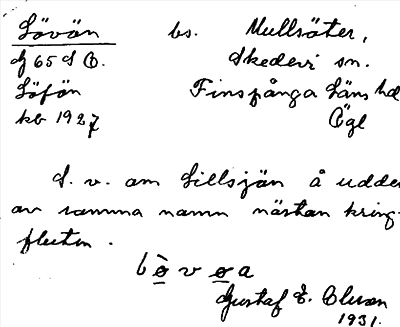 Lövön bs. Mullsäter,
dj 65 S O. Skedevi sn.
Löfön Finspånga Läns hd
kb 1927 Ögl
S. v. om Lillsjön å udde
av samma namn nästan kring-
fluten.
Gustaf E. Olsson
1931.